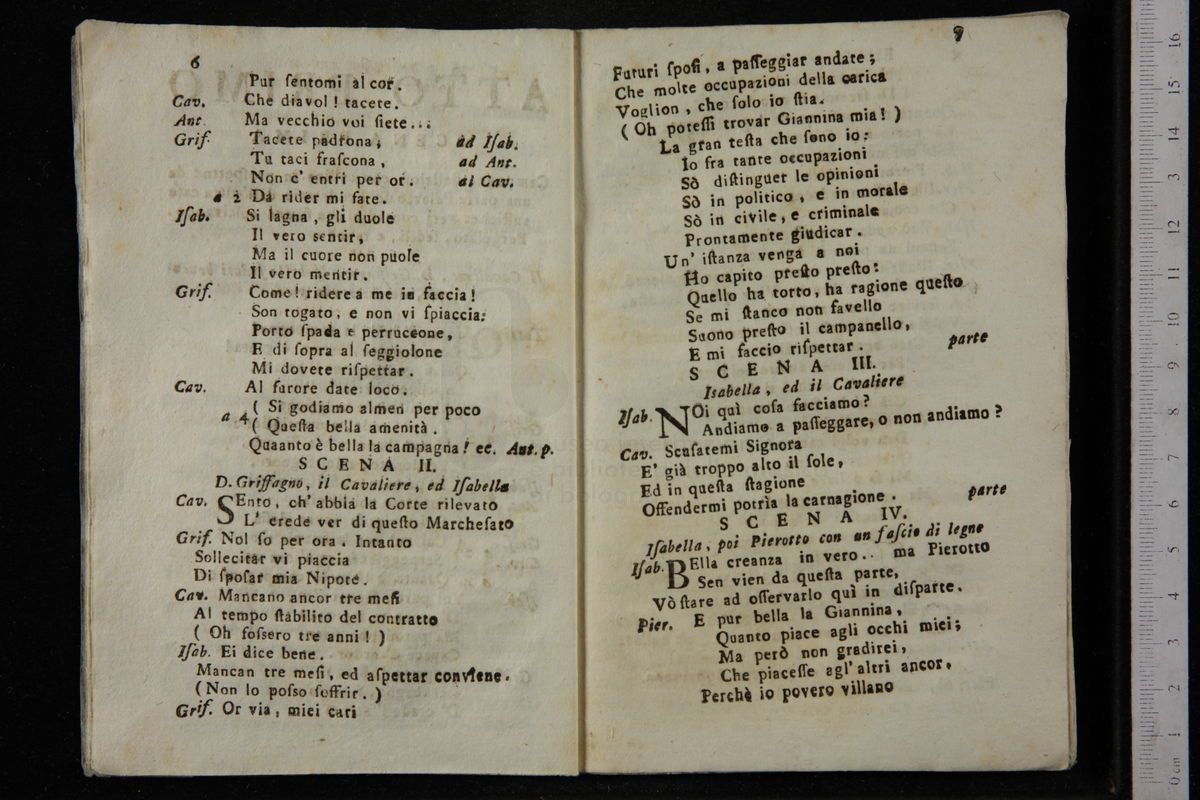 6
Pur ſentomi al cor.
Cav. Che diavol! tacete.
Ant. Ma vecchio voi ſiete...
Grif. Tacete padrona, ad Iſab.
Tu taci fraſcona, ad Ant.
Non c' entri per or. al Cav.
a 2 Da rider mi fate.
Iſab. Si lagna, gli duole
Il vero sentir,
Ma il cuore non puole
Il vero mentir.
Grif. Come! ridere a me in faccia!
Son togato, e non vi ſpiaccia:
Porto ſpada e perruccone,
E di ſopra al ſeggiolone
Mi dovete riſpettar.
Cav. Al furore date loco.
a 4 ( Si godiamo almen per poco
( Queſta bella amenità.
Quaanto è bella la campagna! ec. Ant. p.
SCENA II.
D. Griffagno, il Cavaliere, ed Iſabella
Cav. SEnto, ch' abbia la Corte rilevato
L' erede ver di queſto Marcheſato
Grif. Nol ſo per ora. Intanto
Sollecitar vi piaccia
Di ſpoſar mia Nipote.
Cav. Mancano ancor tre meſi
Al tempo ſtabilito del contratto
( Oh foſsero tre anni! )
Iſab. Ei dice bene.
Mancan tre meſi, ed aſpettar conviene.
(Non lo poſso ſoffrir.)
Grif. Or via, miei cari
7
Futuri ſpoſi, a paſſeggiar andate;
Che molte occupazioni della carica
Voglion, che ſolo io ſtia.
( Oh poteſſi trovar Giannina mia! )
La gran teſta che ſono io:
Io fra tante occupazioni
Sò diſtinguer le opinioni
Sò in politico, e in morale
Sò in civile, e criminale
Prontamente giudicar.
Un' iſtanza venga a noi
Ho capito preſto preſto:
Quello ha torto, ha ragione queſto
Se mi ſtanco non favello
Suono preſto il campanello,
E mi faccio riſpettar. parte
SCENA III.
Isabella, ed il Cavaliere
Iſab. NOi quì coſa facciamo?
Andiamo a paſſeggare, o non andiamo?
Cav. Scuſatemi Signora
E' già troppo alto il ſole,
Ed in queſta ſtagione
Offendermi potrìa la carnagione. parte
SCENA IV.
Iſabella, poi Pierotto con un faſcio di legne
Iſab. BElla creanza in vero.. ma Pierotto
Sen vien da queſta parte,
Vò ſtare ad oſſervarlo quì in diſparte.
Pier. E pur bella la Giannina,
Quanto piace agli occhi miei;
Ma però non gradirei,
Che piaceſſe agl' altri ancor,
Perchè io povero villano